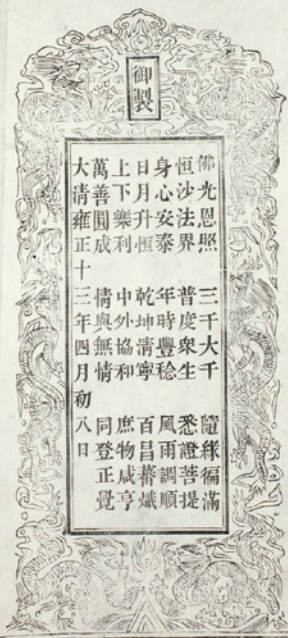 御製
佛光恩照 三千大千 隨緣徧滿
恒沙法界 普度衆生 悉證菩提
身心安泰 年時豐稔 風雨調順
日月升恒 乾坤清寧 百昌蕃熾
上下樂利 中外協和 庶物咸亨
萬善圓成 情與無情 同登正覺
大清雍正十三年四月初八日